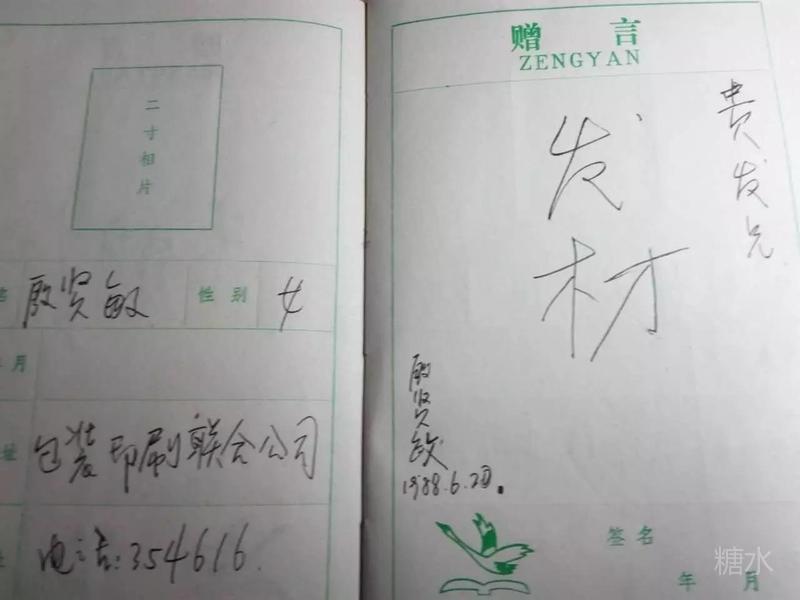 二寸相片
殷贤敏
性别
女
月
址
包装印刷联合公司
电话:354616.
赠言
ZENGYAN
贵发兄
发材
殷贤敏
1988.6.20.
签名
年 月
糖水